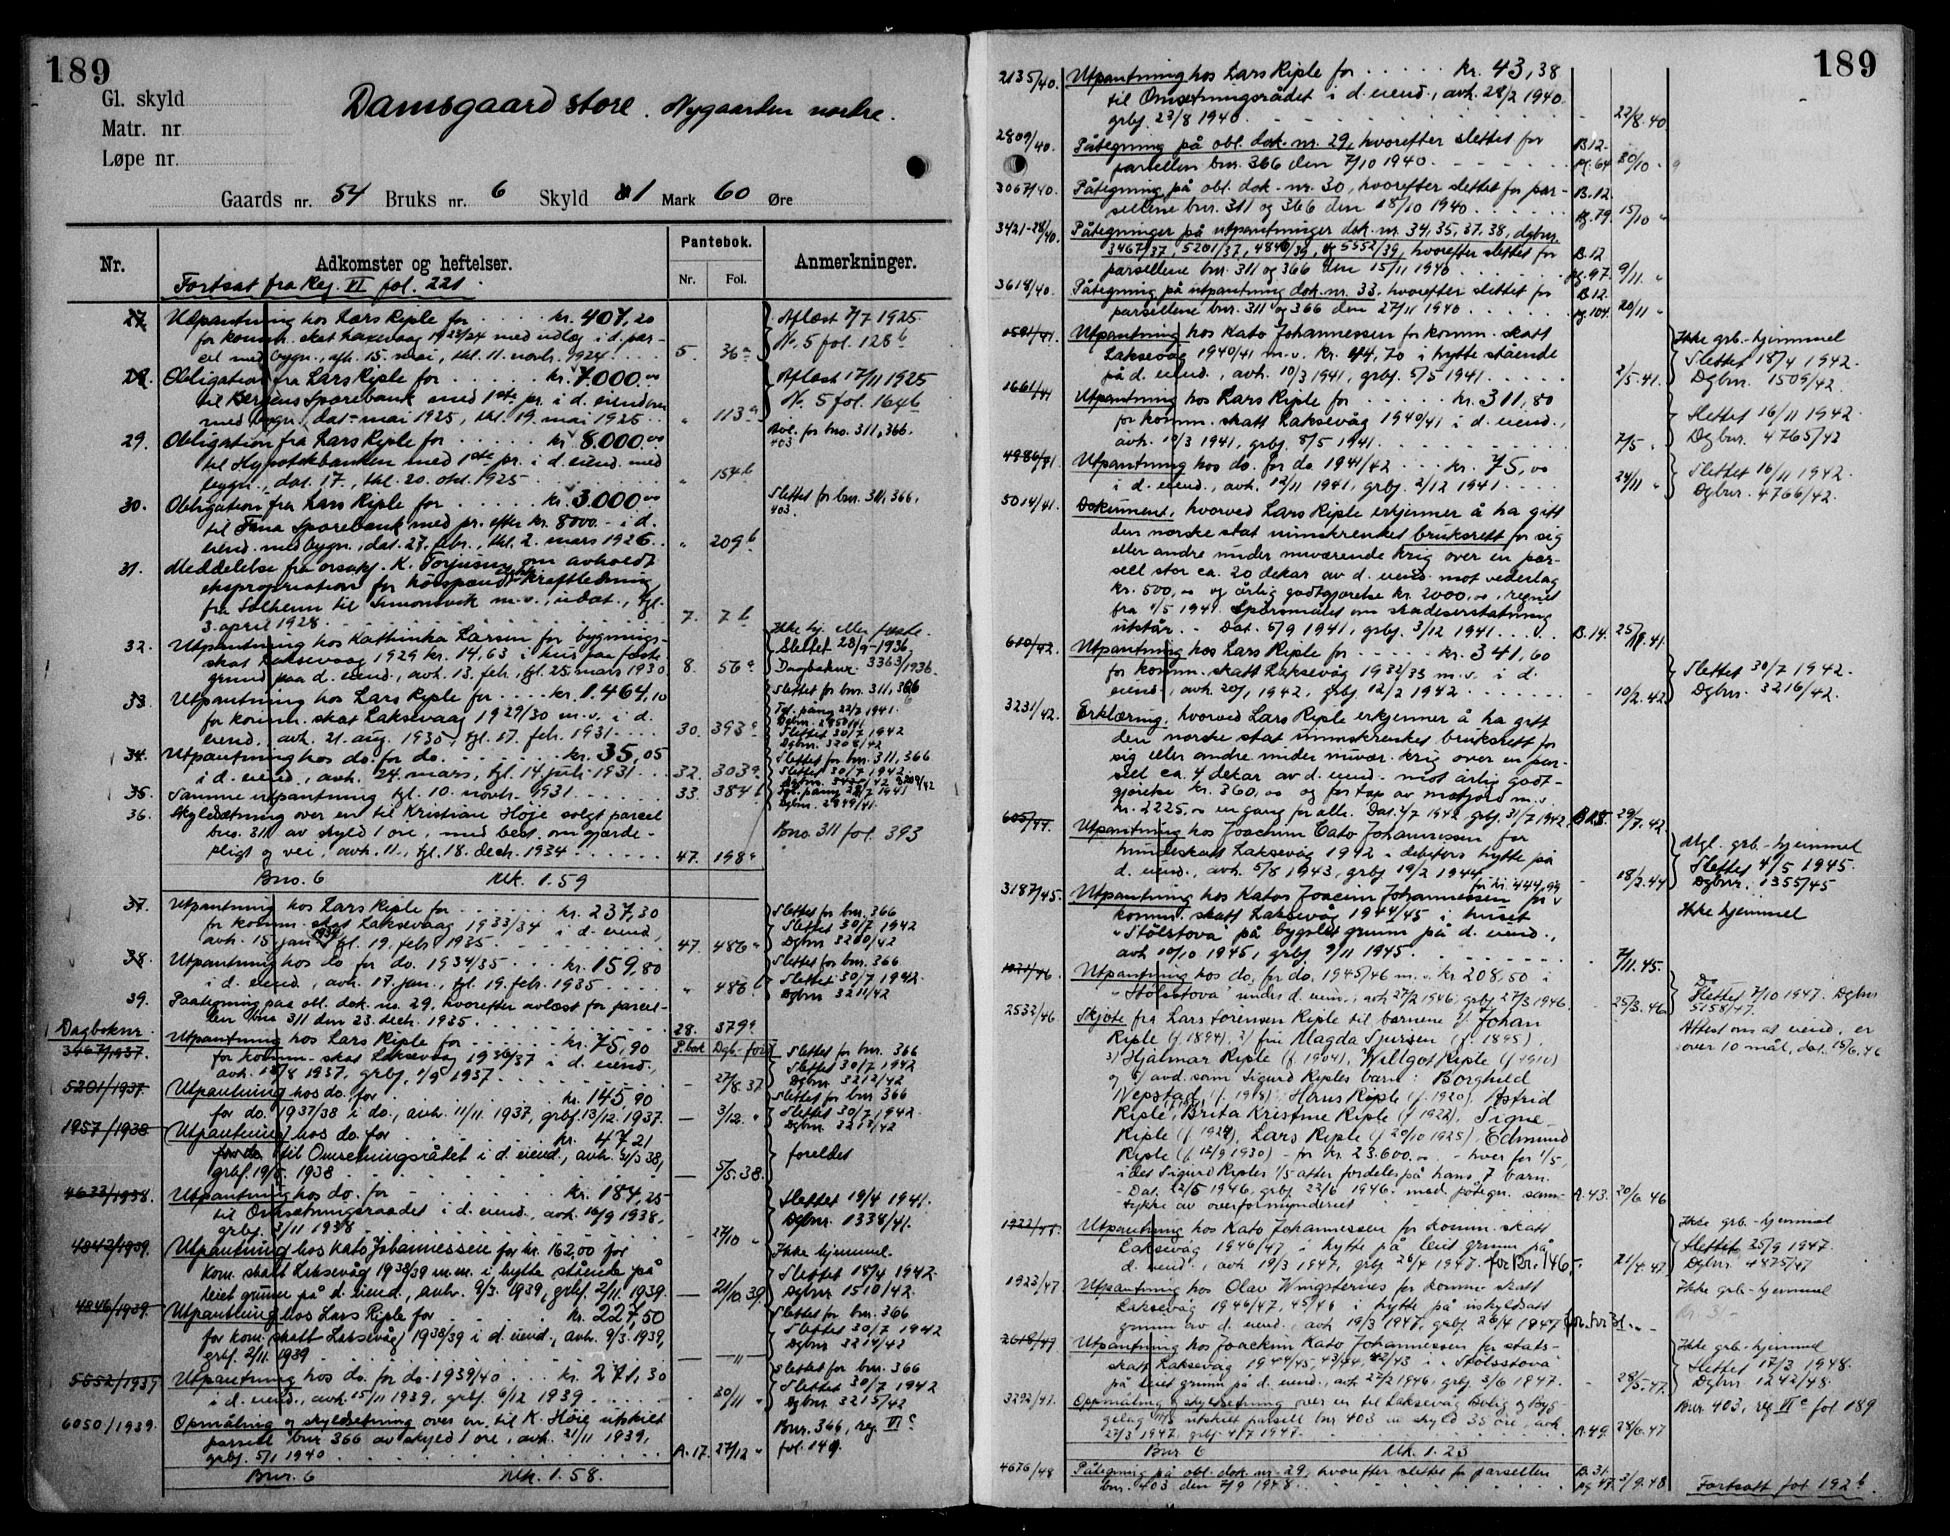 189
Gl. skyld
Matr. nr
Løpe nr.
Damsgaard store. Nygaarden nordre.
Gaards nr. 54 Bruks nr. 6 Skyld 1 Mark 60 Øre
Nr. Adkomster og heftelser. Pantebok. Nr. Fol. Anmerkninger.
Fortsat fra Reg. VI fol. 221.
27. Utpantning hos Lars Riple for kr. 407,20
for komm. skat Laksevaag 1923/24 med utlæg i d. par-
cel med bygn., afh. 15. mai, thl. 11. novbr. 1924 5. 36a
Aflæst 7/7 1925
N. 5 fol. 128b
28. Obligation fra Lars Riple for kr. 7000.00
til Bergens Sparebank med 1ste pr. i d. eiendom
med bygn., dat. mai 1925, thl. 19. mai 1925 " 113a
Aflæst 17/11 1925
N. 5 fol. 164b
29. Obligation fra Lars Riple for kr. 8000.00
til Hypotekbanken med 1ste pr. i d. eiend. med
bygn., dat. 17., thl. 20. okt. 1925 " 154b
Avl. for bno. 311, 366.
403
30. Obligation fra Lars Riple for kr. 3.000.00
til Fana Sparebank med pr. efter kr. 8000.- i d.
eiend. med bygn., dat. 27. febr., thl. 2. mars 1926. " 209b
Slettet for bnr. 311, 366.
403.
31. Meddelelse fra orsakf. K. Torjusen om avholdt
ekspropriation for høispændt kraftledning
fra Solheim til Simonsvik m.v., udat., tgl.
3. april 1928. 7. 7b
32. Utpantning hos Kathinka Larsen for bygnings-
skat Laksevaag 1929 kr. 14,63 i hus paa fæste
grund paa d. eiend., avh. 13. feb., tgl. 25. mars 1930 8. 56a
Ikke hj. eller fæste.
Slettet 28/9-1936
Dagboknr. 3363/1936.
33. Utpantning hos Lars Riple for kr. 1.464,10
for komm. skat Laksevaag 1929/30 m.v. i d.
eiend. avh. 21. aug. 1930, tgl. 17. feb. 1931 30. 393a
Slettet for bnr. 311, 366
Slettet 30/7 1942
Dgbnr. 3208/42
34. Utpantning hos do. for do. kr. 35,05
i d. eiend., avh. 24. mars, tgl. 14. juli 1931 32. 303a
Slettet for bnr. 311, 366
Slettet 30/7 1942
35. Samme utpantning tgl. 10. novbr. 1931 33. 384b
Dgbnr. 2849/41.
36. Skyldsetning over en til Kristian Høje solgt parcel
bno. 311 av skyld 1 øre, med best. om gjerde-
pligt og vei, avh. 11., tgl. 18. decb. 1934 47. 198a
Bno. 311 fol. 393
Bno. 6 Mk. 1.59
37. Utpantning hos Lars Riple for kr. 237,30
for komm. skat Laksevaag 1933/34 i d. eiend,
avh. 15 jan 1935, tgl. 19. feb. 1935. 47. 486a
Slettet for bnr. 366
Slettet 30/7 1942
Dgbnr 3210/42
38. Utpantning hos do for do. 1934/35 kr. 159,80
i d. eiend., avh. 17. jan., tgl. 19. feb. 1935 " 486b
Slettet for bnr. 366
Slettet 30/7 1942
Dgbnr 3211/42
39. Paategning paa obl. dok. no. 29, hvorefter avlæst for parcel-
len bno 311 den 23. decb. 1935 28. 379a
Dagboknr. P.bok Dgb-ført
3467/1937. Utpantning hos Lars Riple for kr. 75,90
for komm. skat Laksevaag 1936/37 i d. eiend.,
avh. 18/8 1937, grbf. 1/9 1937 - 27/8 37
Slettet for bnr. 366
Slettet 30/7 1942
Dgbnr 3212/42
5201/1937. Utpantning hos do. for kr. 145,90
for do. 1937/38 i do., avh. 11/11. 1937, grbf. 13/12. 1937. — 3/12. "
Slettet for bnr 366
Slettet 30/7 1942.
Dgbnr. 3213/42
1957/1938 Utpantning hos do. for kr. 47,21
for do. til Omsetningsrådet i d. eiend., avh. 3/3 38,
grbf. 19/5 1938 — 5/5. 38.
foreldet
4633/1938. Utpantning hos do. for kr. 184,25
til Omsætningsraadet i d. eiend., avh. 16/9 1938,
grbf. 3/11 1938 - 27/10 "
Slettet 19/4 1941.
Dgbnr. 1338/41.
4842/1939. Utpantning hos Kato Johannessen for kr. 162,00 for
kom. skatt Laksevåg 1938/39 m.m. i hytte stående på
leiet grunn på d. eiend., avh. 9/3. 1939, grbf. 2/11. 1939. — 21/10. 39.
Ikke hjemmel.
Slettet 18/4 1942.
Dgbnr. 1510/42.
4846/1939. Utpantning hos Lars Riple for kr. 227,50
for kom. skatt Laksevåg 1938/39 i d. eiend., avh. 9/3. 1939,
grbf. 2/11. 1939 — "
Slettet for bnr. 366
Slettet 30/7 1942
Dgbnr 3214/42
5552/1939 Utpantning hos do. for do. 1939/40 kr. 271,30
i d. eiend., avh. 15/11 1939, grbf. 9/12 1939 - 30/11 "
Slettet for bnr. 366
Slettet 30/7 1942
Dgbnr. 3215/42
6050/1939. Opmåling og skyldsetning over en til K. Høie utskilt
parsell bnr 366 av skyld 1 øre, avh. 21/11 1939,
grbf. 5/1 1940 A. 17. 27/12 "
Bnr. 366, reg. VI c
fol. 149.
Bnr. 6 Mk. 1.58.
189
2135/40. Utpantning hos Lars Riple for kr. 43,38
til Omsetningsrådet i d. eiend., avh. 28/2 1940.
grbf. 23/8 1940. - 22/8. 40.
2809/40. Påtegning på obl. dok. nr. 29, hvorefter slettet for
parsellen bnr. 366 den 7/10 1940. B.12. pg. 64 30/10 "
3067/40. Påtegning på obl. dok. nr. 30, hvorefter slettet for par-
sellene bnr. 311 og 366 den 18/10 1940. B.12. pg. 79. 15/10 "
3421-28/40. Påtegninger på utpantninger dok. nr. 34, 35, 37, 38, dgbnr.
3467/37, 5201/37, 4846/39, og 5552/39, hvorefter slettet for
parsellene bnr. 311 og 366 den 15/11 1940 B.12 pg. 97. 9/11. "
3618/40. Påtegning på utpantning dok. nr. 33, hvorefter slettet for
parsellene bnr. 311 og 366 den 27/11 1940 B.12. pg. 104. 20/11 "
1581/41. Utpantning hos Kato Johannessen for komm. skatt
Laksevåg 1940/41 m.v. kr. 44,70 i hytte stående
på d. eiend., avh. 10/3 1941, grbf. 5/5 1941 2/5. 41.
Ikke grb.-hjemmel
Slettet 18/4 1942.
Dgbnr. 1509/42.
1661/41 Utpantning hos Lars Riple for kr. 311,80
for komm. skatt Laksevåg 1940/41 i d. eiend.,
avh. 10/3 1941, grbf. 8/5 1941. 7/5 "
Slettet 16/11 1942.
Dgbnr. 4765/42
4986/41 Utpantning hos do. for do. 1941/42 kr. 75,00
i d. eiend., avh. 12/11 1941, grbf. 2/12 1941 24/11 "
Slettet 16/11 1942.
Dgbnr. 4766/42.
5014/41. Dokument, hvorved Lars Riple erkjenner å ha gitt
den norske stat innskrenket bruksrett for sig
eller andre under nuværende krig over en par-
sell stor ca. 20 dekar av d. eiend. mot vederlag
kr. 500,00 og årlig godtgjørelse kr. 2000,00, regnet
fra 1/5 1941. Spørsmålet om skadeserstatning
utstår. - Dat. 5/9 1941, grbf. 3/12 1941 B.14. 25/11. 41.
610/42. Utpantning hos Lars Riple for kr. 341,60
for komm. skatt Laksevåg 1932/33 m.v. i d.
eiend., avh. 20/1 1942, grbf 12/2 1942 - 10/2. 42
Slettet 30/7 1942.
Dgbnr. 3216/42.
3231/42. Erklæring, hvorved Lars Riple erkjenner å ha gitt
den norske stat innskrenket bruksrett for
sig eller andre under nuvær. krig over en par-
sell ca. 4 dekar av d. eiend. mot årlig godt-
gjørelse kr. 360,00 og for tap av matjord m.v.
kr. 2225,00 en gang for alle. Dat. 2/7 1942, grbf. 31/7 1942. B.18. 29/7. 42
605/44. Utpantning hos Joachim Cato Johannessen for
hundeskatt Laksevåg 1942 i debitors hytte på
d. eiend., avh. 5/8 1943, grbf 19/2 1944 - 18/2. 44
Mgl. grb.-hjemmel
Slettet 4/5 1945.
Dgbnr. 1355/45
3187/45. Utpantning hos Katos Joacim Johannessen for kr. 444,99 for
komm. skatt Laksevåg 1944/45 i huset
"Stølstova" på bygslet grunn på d. eiend.,
avh 10/10 1945, grbf. 9/11 1945 - 7/11. 45.
Ikke hjemmel
1021/46. Utpantning hos do. for do. 1945/46 m.v. kr 208,50 i
"Stølsstova" under d. eien., avh 27/2 1946, grbf 27/3 1946 - 25/3. 46
Do
Slettet 7/10 1947. Dgbnr
5158/47.
2532/46 Skjøte fra Lars Sørensen Riple til barnene 1/ Johan
Riple (f. 1894), 2/ fru Magda Sjursen (f. 1895).
3/ Hjalmar Riple (f. 1904), 4/ Villgot Riple (f 1910)
og 5/ avd. sønn Sigurd Riples barn: Borghild
Nepstad (f. 1918), Hans Riple (f. 1920), Astrid
Riple, Brita Kristine Riple (f 1922), Signe
Riple (f 1924), Lars Riple (f 20/10 1925), Edmund
Riple (f. 12/9 1930) - for kr. 23.600,00 - hver for 1/5,
idet Sigurd Riples 1/5 atter fordeles på hans 7 barn.
- Dat. 22/5 1946, grbf. 22/6 1946. med påtegn. sam-
tykke av overformynderiet A.43. 20/6. 46
Attest om at eiend. er
over 10 mål, dat. 15/6. 46
1922/47. Utpantning hos Kato Johannessen for komm. skatt
Laksevåg 1946/47 i hytte på leiet grunn på
d. eiend., avh 19/3 1947, grbf 26/4 1947. for kr. 146,- 21/4. 47
Ikke grb.-hjemmel
Slettet 25/9 1947.
Dgbnr. 4875/47
1923/47 Utpantning hos Olav Wingsternes for komm. skatt
Laksevåg 1946/47, 45/46 i hytte på uskyldsatt
grunn av d. eiend., avh 19/3 1947, grbf 26/4 1947 for kr 31.- "
Ikke grb-hjemmel
2618/47 Utpantning hos Joackim Kato Johannessen for stats-
skatt Laksevåg 1944/45, 43/44, 42/43 i "Stølsstova"
på leiet grunn på d. eiend., avh 27/2 1946, grbf 3/6 1947. - 28/5. 47.
Ikke grb-hjemmel
Slettet 17/3 1948.
Dgbnr. 1242/48.
3292/47. Oppmåling og skyldsetning over en til Laksevåg Bolig og Byg-
gelag utskilt parsell bnr 403 av skyld 35 øre, avh
27/3 1947, grbf. 4/7 1947. A.49. 28/6. 47
Bnr 403, reg VI c fol 189
Bnr 6 Mk. 1.23
4676/48 Påtegning på obl. dok. nr. 29, hvorefter slettet for parsellen
bnr. 403 den 7/9 1948. B.31. pg 47. 3/9. 48
Fortsatt fol 192b.